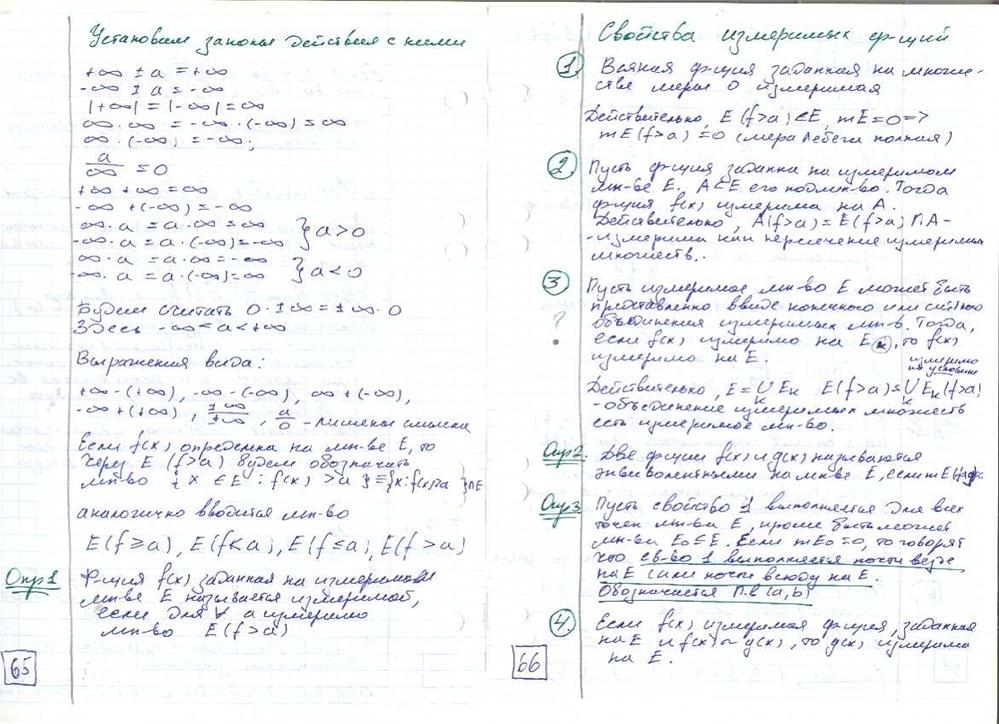 Установим законы действия с ними
+∞ ± a = +∞
-∞ ± a = -∞
|+∞| = |-∞| = ∞
∞·∞ = -∞·(-∞) = ∞
∞·(-∞) = -∞;
a/∞ = 0
+∞ + ∞ = ∞
-∞ + (-∞) = -∞
∞·a = a·∞ = ∞
-∞·a = a·(-∞) = -∞ } a>0
∞·a = a·∞ = -∞
-∞·a = a·(-∞) = ∞ } a<0
Будем считать 0·±∞ = ±∞·0
Здесь -∞ < a < +∞
Выражения вида:
+∞-(+∞), -∞-(-∞), ∞+(-∞),
-∞+(+∞), ±∞/±∞, a/0 - лишены смысла
Если f(x) определена на мн-ве E, то
через E(f>a) будем обозначать
мн-во { x ∈ E : f(x) > a } ≡ {x: f(x)>a } ∩ E
аналогично вводится мн-во
E(f≥a), E(f<a), E(f≤a), E(f>a)
Опр1 Ф-ция f(x) заданная на измеримом
мн-ве E называется измеримой,
если для ∀ a измеримо
мн-во E(f>a)
65
Свойства измеримых ф-ций
1. Всякая ф-ция заданная на множе-
стве меры 0 измеримая
Действительно, E(f>a) ⊂ E, mE=0 =>
mE(f>a)=0 (мера Лебега полная)
2. Пусть ф-ция заданна на измеримом
мн-ве E. A⊂E его подмн-во. Тогда
ф-ция f(x) измерима на A.
Действительно, A(f>a) = E(f>a) ∩ A -
- измерима как пересечение измеримых
множеств.
3 Пусть измеримое мн-во E может быть
представленно ввиде конечного или счётного
? объединения измеримых мн-в. Тогда,
если f(x) измеримо на E k, то f(x)
измеримо на E.
измеримо
по условию
Действительно, E = ∪ Ek E(f>a) = ∪ Ek (f>a)
k k
- объединение измеримых множеств
есть измеримое мн-во.
Опр2. Две ф-ции f(x) и g(x) называются
эквивалентными на мн-ве E, если mE(f≠g)=
Опр3 Пусть свойство 1 выполняется для всех
точек мн-ва E, кроме быть может
мн-ва E₀ ⊆ E. Если mE₀=0, то говорят
что св-во 1 выполняется почти везде
на E (или почти всюду на E.
Обозначается П.в (a,b)
4. Если f(x) измеримая ф-ция, заданная
на E и f(x) ~ g(x), то g(x) измерима
на E.
66